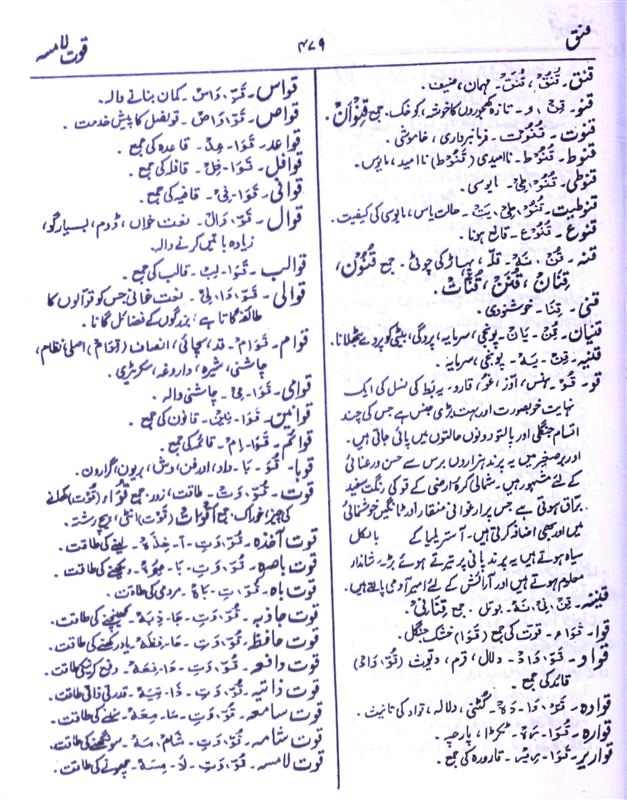 قنق
۴۷۹
قوت لامسہ
قنق۔ قُنُقْ، قُنَقْ۔ مہمان، ضیف۔
قنو۔ قِنْ، و۔ تازہ کھجوروں کا خوشہ، کوخک۔ جمع قِنْوَانْ۔
قنوت۔ قُنُوْت۔ فرمانبرداری، خاموشی۔
قنوط۔ قُنُوْط۔ ناامیدی (قَنُوْط) ناامید، مایوس۔
قنوطی۔ قُنُوْ، طِیْ۔ مایوسی۔
قنوطیت۔ قُنُوْ، طِیْ، یَتْ۔ حالتِ یاس، مایوسی کی کیفیت۔
قنوع۔ قُنُوْع۔ قانع ہونا۔
قنہ۔ قُنْ، نَہْ۔ قلّہ، پہاڑ کی چوٹی۔ جمع قُنُوْن،
قِنَانْ، قُنَنْ، قُنَّاتْ۔
قنی۔ قِنَا۔ خوشنودی۔
قنیان۔ قُنْ، یَانْ۔ پونجی، سرمایہ، پردگی، بیٹی کو پردے بٹھلانا۔
قنیہ۔ قِنْ، یَہْ۔ پونجی، سرمایہ۔
قو۔ قُوْ۔ ہنس، اوز، غو، قارو۔ یہ بط کی نسل کی ایک
نہایت خوبصورت اور بہت بڑی جنس ہے جس کی چند
اقسام جنگلی اور پالتو دونوں حالتوں میں پائی جاتی ہیں۔
اور برصغیر میں یہ پرند ہزاروں برس سے حسن و رعنائی
کے لئے مشہور ہیں۔ شمالی کرّہ ارضی کے قو کی رنگت سفید
براق ہوتی ہے جس پر ارغوانی منقار اور ٹانگیں خوشنمائی
میں اور بھی اضافہ کرتی ہیں۔ آسٹریلیا کے بالکل
سیاہ ہوتے ہیں یہ پرند پانی پر تیرتے ہوئے بڑے شاندار
معلوم ہوتے ہیں اور آرائش کے لئے امیر آدمی پالتے ہیں۔
قنینہ۔ قِنْ، نِیْ، نَہْ۔ بوتل۔ جمع قِنَانِیْ۔
قوا۔ قُوَاء۔ قوت کی جمع (قَوَا) خشک جنگل۔
قواد۔ قَوْ، وَادْ۔ دلال، قرم، دیوث (قُوْ، وَادْ)
قائد کی جمع۔
قوادہ۔ قَوْ، وَا، دَہْ۔ کٹنی، دلالہ، قواد کی تانیث۔
قوارہ۔ قُوَا، رَہْ۔ ٹکڑا، پارچہ۔
قواریر۔ قَوَا، رِیْر۔ قارورہ کی جمع۔
قواس۔ قَوْ، وَاسْ۔ کمان بنانے والا۔
قواص۔ قَوْ، وَاصْ۔ قونصل کا پیش خدمت۔
قواعد۔ قَوَا، عِدْ۔ قاعدہ کی جمع۔
قوافل۔ قَوَا، فِلْ۔ قافلہ کی جمع۔
قوافی۔ قَوَا، فِیْ۔ قافیہ کی جمع۔
قوال۔ قَوْ، وَالْ۔ نعت خواں، ڈوم، بسیار گو،
زیادہ باتیں کرنے والا۔
قوالب۔ قَوَا، لِبْ۔ قالب کی جمع۔
قوالی۔ قَوْ، وَا، لِیْ۔ نعت خوانی جس کو قوالوں کا
طائفہ گاتا ہے؛ بزرگوں کے فضائل گانا۔
قوام۔ قَوَامْ۔ قد، سچائی، انصاف (قِوَامْ) اصلی نظام،
چاشنی، شیرہ، داروغہ، سکرٹری۔
قوامی۔ قَوَا، مِیْ۔ چاشنی والا۔
قوانین۔ قَوَا، نِیْنْ۔ قانون کی جمع۔
قوائم۔ قَوَا، اِمْ۔ قائمہ کی جمع۔
قوبا۔ قُوْ، بَا۔ داد، اورفن، وِش، بریون، گرارون۔
قوت۔ قُوْ، وَتْ۔ طاقت، زور۔ جمع قُوَاء (قُوْت) کھانے
کی چیز، خوراک۔ جمع اَقْوَاتْ (قُوَت) انٹی، پیچ رشتہ۔
قوت آخذہ۔ قُوْ، وَتِ۔ آ، خِذَہْ۔ لینے کی طاقت۔
قوت باصرہ۔ قُوْ، وَتِ۔ بَا، صِرَہْ۔ دیکھنے کی طاقت۔
قوت باہ۔ قُوْ، تِ، بَاہْ۔ مردمی کی طاقت۔
قوت جاذبہ۔ قُوْ، وَتِ۔ جَا، ذِبَہْ۔ کھینچنے کی طاقت۔
قوت حافظہ۔ قُوْ، وَتِ۔ حَا، فِظَہْ۔ یاد رکھنے کی طاقت۔
قوت دافعہ۔ قُوْ، وَتِ۔ دَا، فِعَہْ۔ دفع کرنیکی طاقت۔
قوت ذاتیہ۔ قُوْ، وَتِ۔ ذَا، تِیَہْ۔ قدرتی ذاتی طاقت۔
قوت سامعہ۔ قُوْ، وَتِ۔ سَا، مِعَہْ۔ سننے کی طاقت۔
قوت شامہ۔ قُوْ، وَتِ۔ شَامْ، مَہْ۔ سونگھنے کی طاقت۔
قوت لامسہ۔ قُوْ، وَتِ۔ لَا، مِسَہْ۔ چھونے کی طاقت۔